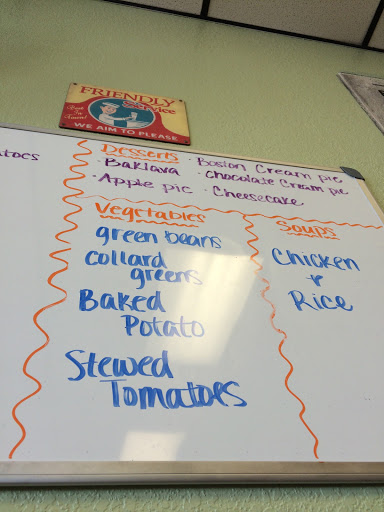 FRIENDLY
Service
Best In Town!
WE AIM TO PLEASE
Desserts · Boston Cream pie
· Baklava · Chocolate Cream pie
· Apple pie · Cheesecake
Vegetables
green beans
Collard
greens
Baked
Potato
Stewed
Tomatoes
Soups
Chicken
&
Rice